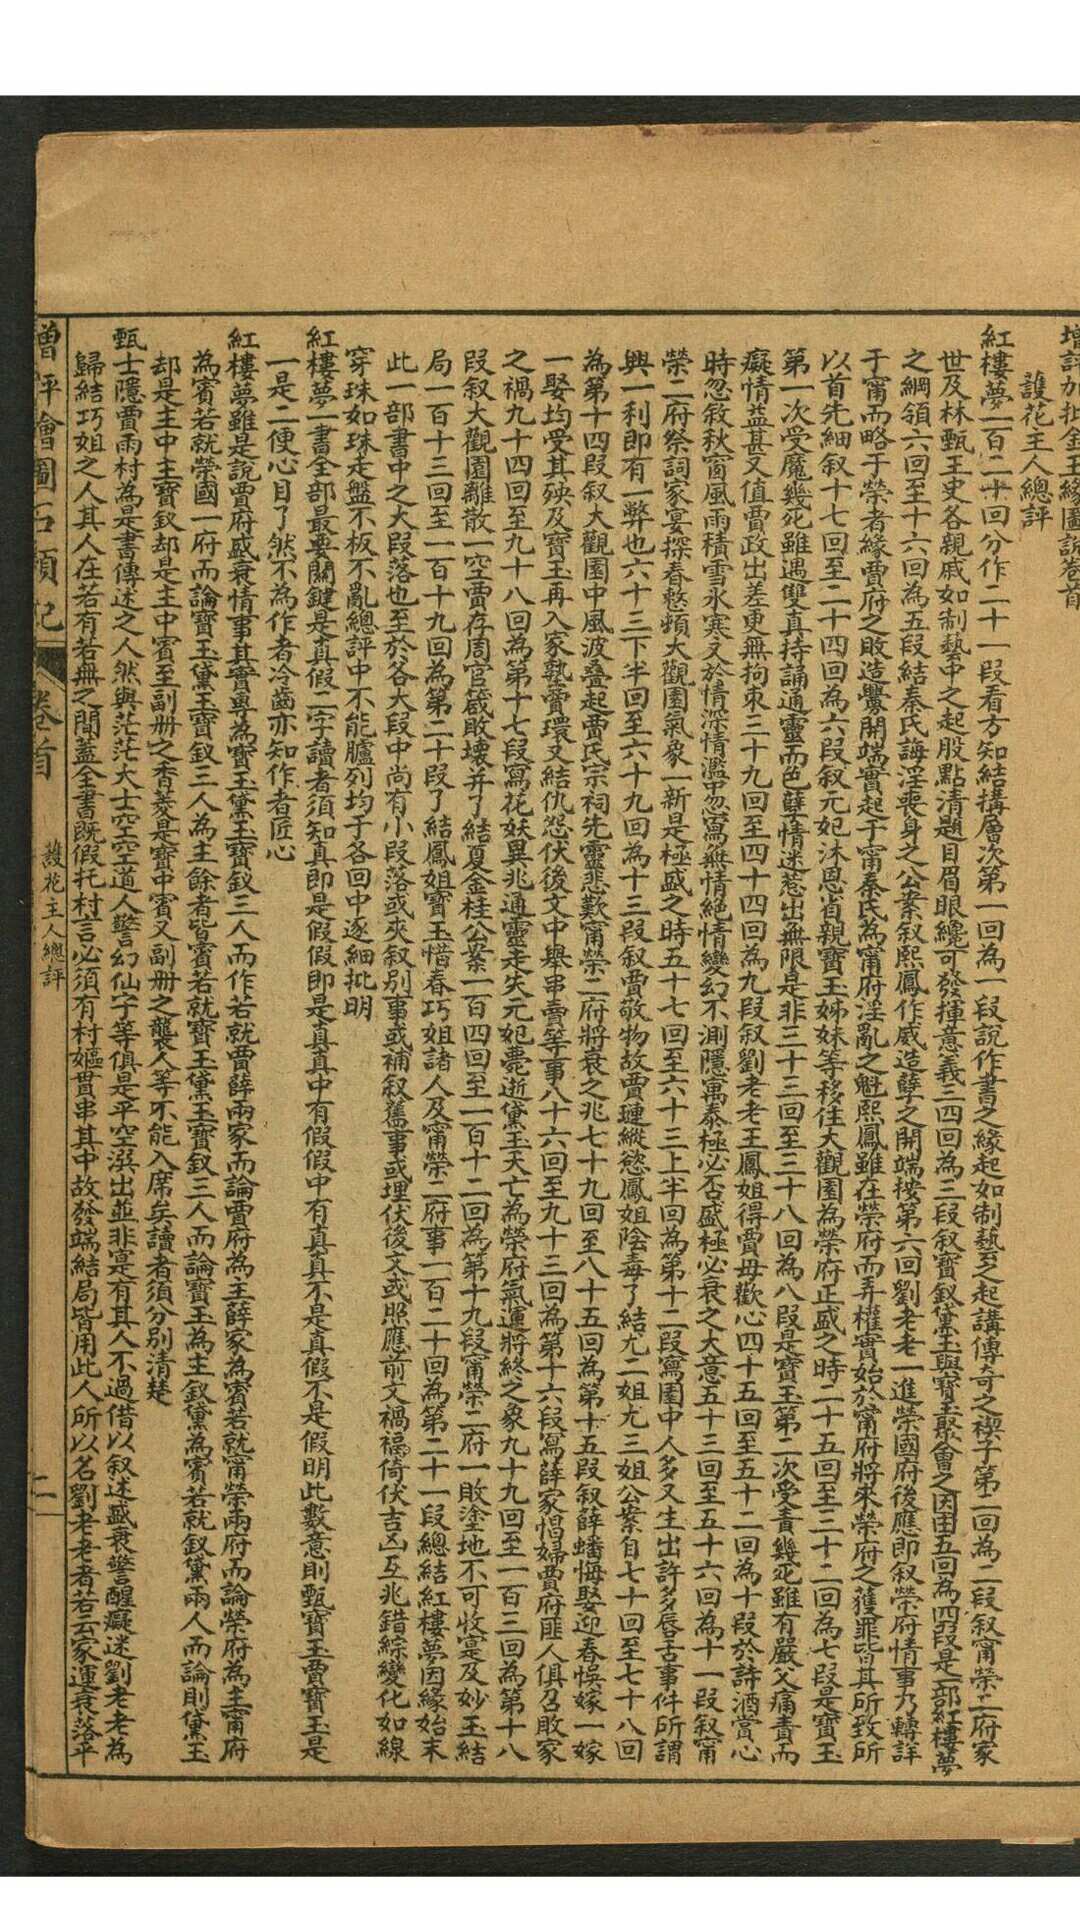 增評加批金玉緣圖說卷首
護花主人總評
紅樓夢一百二十回分作二十一段看方知結搆層次第一回為一段說作書之緣起如制藝之起講傳奇之楔子第二回為二段敘甯榮二府家
世及林甄王史各親戚如制藝中之起股點清題目眉眼纔可發揮意義三四回為三段敘寶釵黛玉與寶玉聚會之因由五回為四段是一部紅樓夢
之綱領六回至十六回為五段結秦氏誨淫喪身之公案敘熙鳳作威造孽之開端按第六回劉老老一進榮國府後應即敘榮府情事乃轉詳
于甯而略于榮者緣賈府之敗造釁開端實起于甯秦氏為甯府淫亂之魁熙鳳雖在榮府而弄權實始於甯府將來榮府之獲罪皆其所致所
以首先細敘十七回至二十四回為六段敘元妃沐恩省親寶玉姊妹等移住大觀園為榮府正盛之時二十五回至三十二回為七段是寶玉
第一次受魔幾死雖遇雙真持誦通靈而色孽情迷惹出無限是非三十三回至三十八回為八段是寶玉第二次受責幾死雖有嚴父痛責而
癡情益甚又值賈政出差更無拘束三十九回至四十四回為九段敘劉老老王鳳姐得賈母歡心四十五回至五十二回為十段於詩酒賞心
時忽敘秋窗風雨積雪氷寒又於情深情濫忽寫無情絕情變幻不測隱寓泰極必否盛極必衰之大意五十三回至五十六回為十一段敘甯
榮二府祭祠家宴探春整頓大觀園氣象一新是極盛之時五十七回至六十三上半回為第十二段寫園中人多又生出許多唇舌事件所謂
興一利即有一弊也六十三下半回至六十九回為十三段敘賈敬物故賈璉縱慾鳳姐陰毒了結尤二姐尤三姐公案自七十回至七十八回
為第十四段敘大觀園中風波叠起賈氏宗祠先靈悲歎甯榮二府將衰之兆七十九回至八十五回為第十五段敘薛蟠悔娶迎春悞嫁一嫁
一娶均受其殃及寶玉再入家塾賈環又結仇怨伏後文中舉串賣等事八十六回至九十三回為第十六段寫薛家悍婦賈府匪人俱召敗家
之禍九十四回至九十八回為第十七段寫花妖異兆通靈走失元妃薨逝黛玉夭亡為榮府氣運將終之象九十九回至一百三回為第十八
段敘大觀園離散一空賈存周官箴敗壞并了結夏金桂公案一百四回至一百十二回為第十九段甯榮二府一敗塗地不可收寔及妙玉結
局一百十三回至一百十九回為第二十段了結鳳姐寶玉惜春巧姐諸人及甯榮二府事一百二十回為第二十一段總結紅樓夢因緣始末
此一部書中之大段落也至於各大段中尚有小段落或夾敘別事或補敘舊事或埋伏後文或照應前文禍福倚伏吉凶互兆錯綜變化如線
穿珠如珠走盤不板不亂總評中不能臚列均于各回中逐細批明
紅樓夢一書全部最要關鍵是真假二字讀者須知真即是假假即是真真中有假假中有真真不是真假不是假明此數意則甄寶玉賈寶玉是
一是二便心目了然不為作者冷齒亦知作者匠心
紅樓夢雖是說賈府盛衰情事其實專為寶玉黛玉寶釵三人而作若就賈薛兩家而論賈府為主薛家為賓若就甯榮兩府而論榮府為主甯府
為賓若就榮國一府而論寶玉黛玉寶釵三人為主餘者皆賓若就寶玉黛玉寶釵三人而論寶玉為主釵黛為賓若就釵黛兩人而論則黛玉
却是主中主寶釵却是主中賓至副册之香菱是賓中賓又副册之襲人等不能入席矣讀者須分別清楚
甄士隱賈雨村為是書傳述之人然與茫茫大士空空道人警幻仙子等俱是平空撰出並非寔有其人不過借以敘述盛衰警醒癡迷劉老老為
歸結巧姐之人其人在若有若無之間蓋全書既假托村言必須有村嫗貫串其中故發端結局皆用此人所以名劉老老者若云家運衰落平
增評繪圖石頭記 卷首 護花主人總評 二